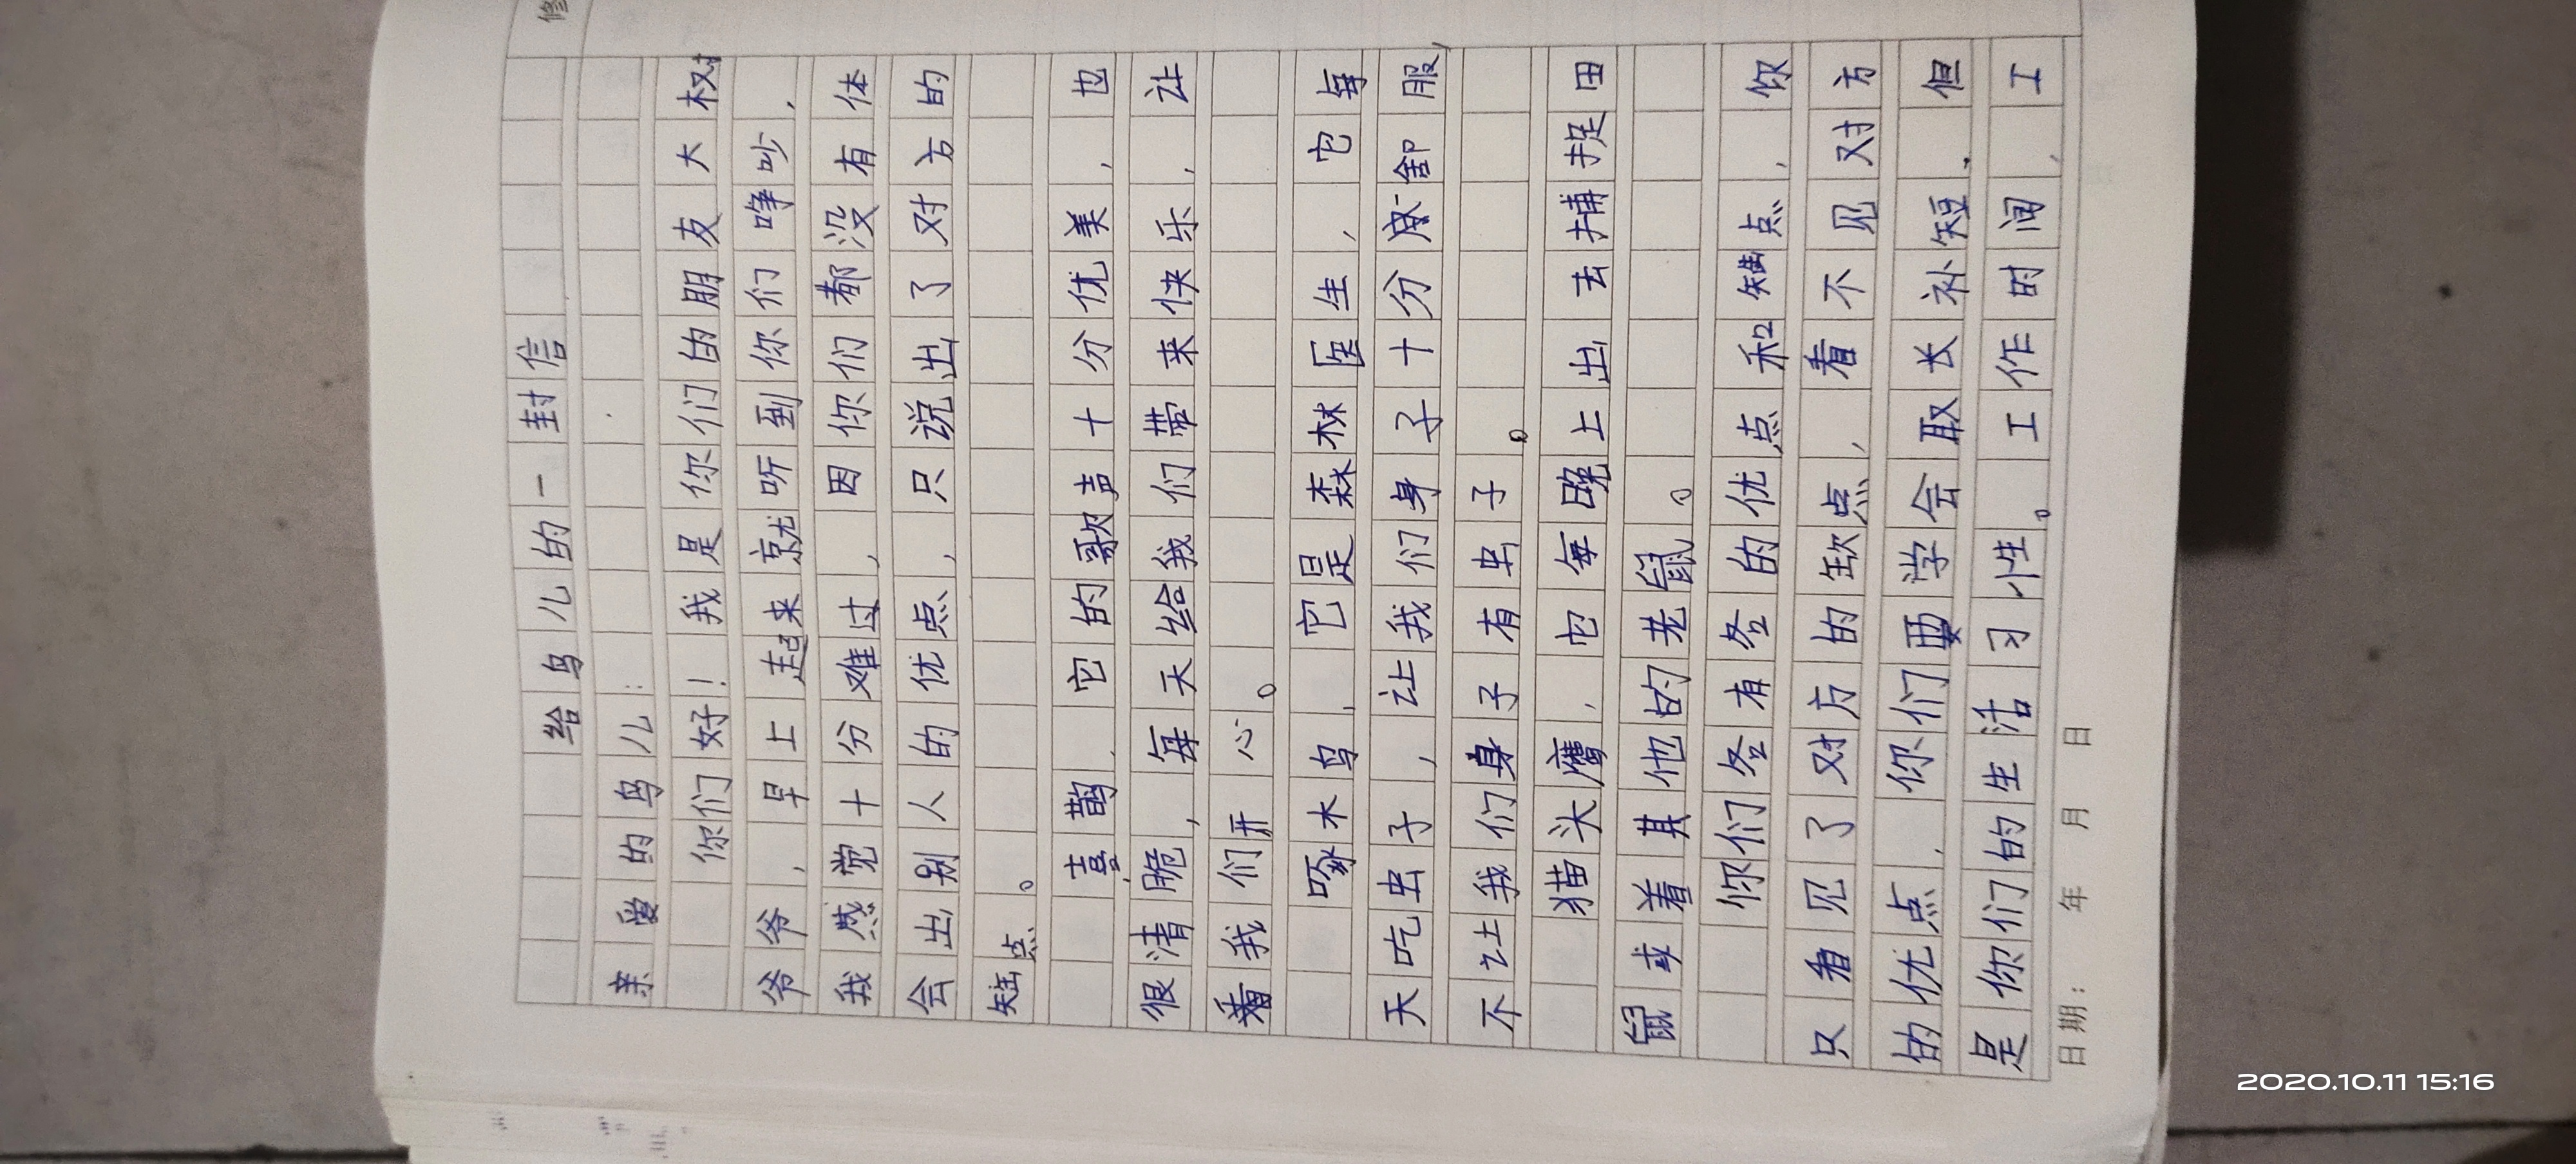 给鸟儿的一封信
亲爱的鸟儿：
你们好！我是你们的朋友大树
爷爷，早上起来就听到你们争吵，
我感觉十分难过，因你们都没有体
会出别人的优点，只说出了对方的
短点。
喜鹊，它的歌声十分优美，也
很清脆，每天给我们带来快乐，让
着我们开心。
啄木鸟，它是森林医生，它每
天吃虫子，让我们身子十分舒服，
不让我们身子有虫子。
猫头鹰，它每晚上出去捕捉田
鼠或着其他的老鼠。
你们各有各的优点和短点，你
只看见了对方的缺点，看不见对方
的优点，你们要学会取长补短，但
是你们的生活习性。工作时间，工
日期： 年 月 日
修
2020.10.11 15:16